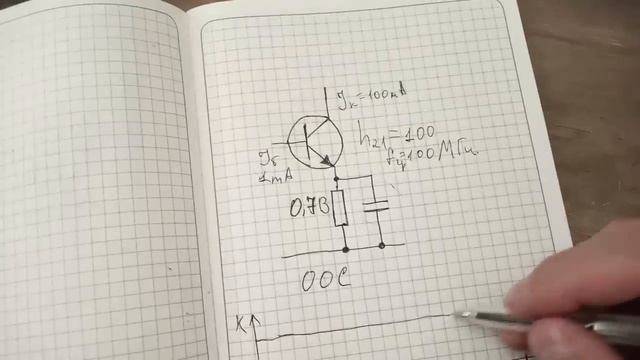 Iк=100мА
h21=100
fгр=100МГц
Iб
1мА
0,7В
ООС
К